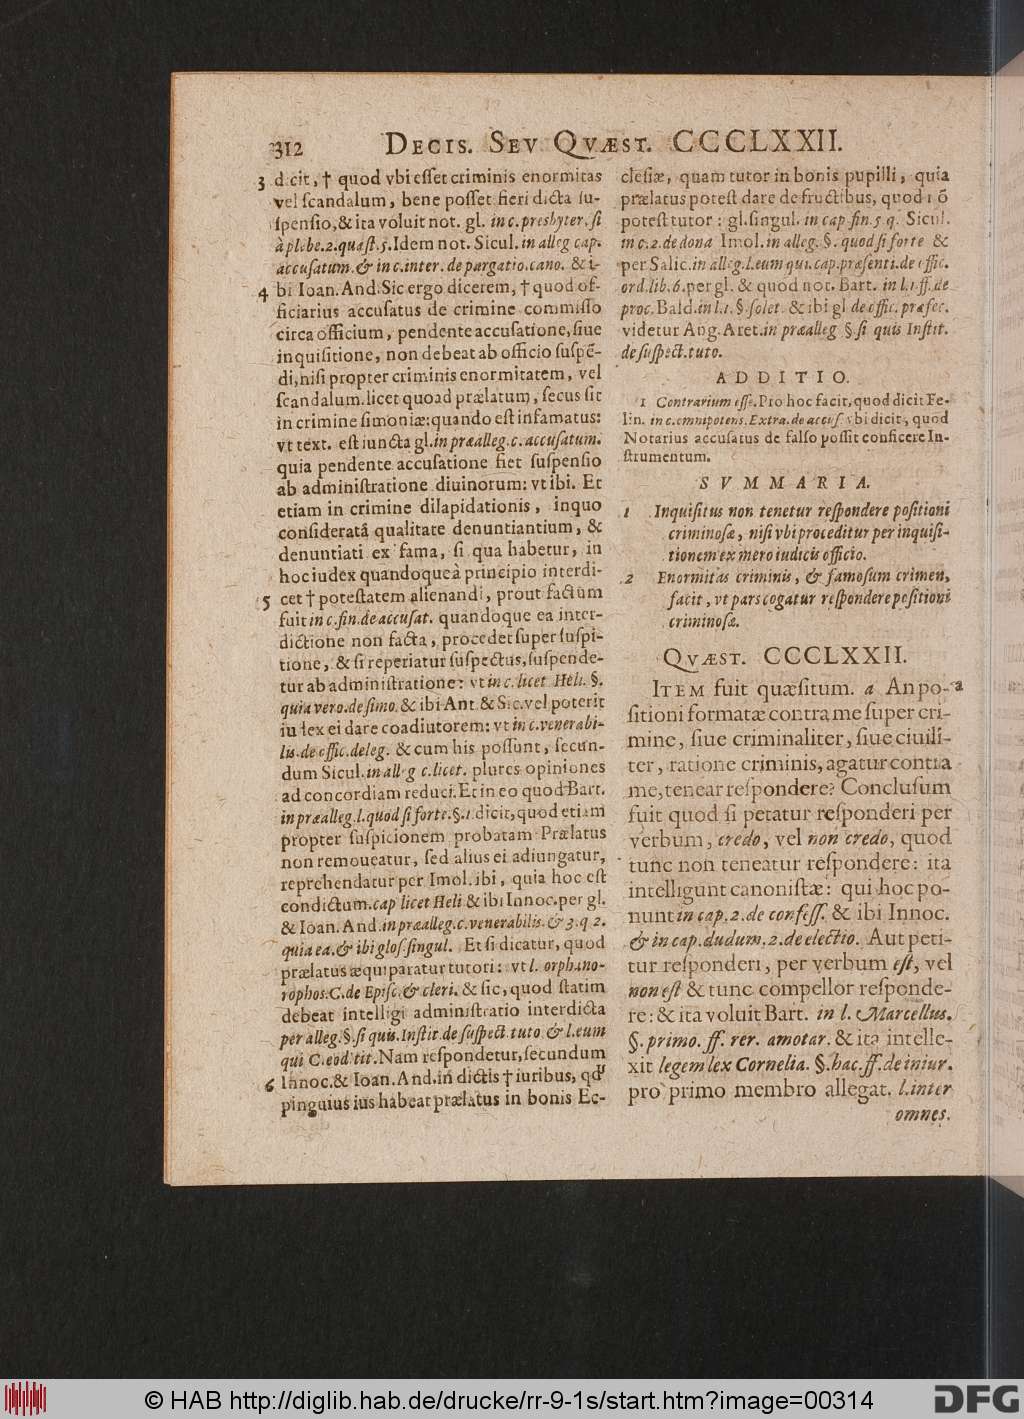 312 DECIS. SEV QVÆST. CCCCLXXII.
3 dicit, † quod vbi esset criminis enormitas
vel scandalum, bene posset fieri dicta su-
spensio, & ita voluit not. gl. in c. presbyter. si
à plebe. 2. quæst. 5. Idem not. Sicul. in alleg cap.
accusatum. & in c. inter. de purgatio. cano. & i-
4 bi Ioan. And. Sic ergo dicerem, † quod of-
ficiarius accusatus de crimine commisso
circa officium, pendente accusatione, siue
inquisitione, non debeat ab officio suspē-
di, nisi propter criminis enormitatem, vel
scandalum. licet quoad prælatum, secus sit
in crimine simoniæ: quando est infamatus:
vt text. est iuncta gl. in præalleg. c. accusatum.
quia pendente accusatione fiet suspensio
ab administratione diuinorum: vt ibi. Et
etiam in crimine dilapidationis, inquo
consideratâ qualitate denuntiantium, &
denuntiati ex fama, si qua habetur, in
hoc iudex quandoque à principio interdi-
5 cet † potestatem alienandi, prout factum
fuit in c. fin. de accusat. quandoque ea inter-
dictione non facta, procedet super suspi-
tione, & si reperiatur suspectus, suspende-
tur ab administratione: vt in c. licet Heli. §.
quia vero. de simo. & ibi Ant. & Sic. vel poterit
iudex ei dare coadiutorem: vt in c. venerabi-
lis. de offic. deleg. & cum his possunt, secun-
dum Sicul. in alleg c. licet. plures opiniones
ad concordiam reduci. Et in eo quod Bart.
in præalleg. l. quod si forte. §. 1 dicit, quod etiam
propter suspicionem probatam Prælatus
non remoueatur, sed alius ei adiungatur,
reprehendatur per Imol. ibi, quia hoc est
condictum. cap licet Heli & ibi Innoc. per gl.
& Ioan. And. in præalleg. c. venerabilis. & 3. q 2.
quia ea. & ibi glos. singul. Et si dicatur, quod
prælatus æquiparatur tutori: vt l. orphano-
rophos. C. de Episc. & cleri. & sic, quod statim
debeat intelligi administratio interdicta
per alleg. §. si quis. Instit. de suspect. tuto & l. eum
qui C. eod tit. Nam respondetur, secundum
6 Innoc. & Ioan. And. in dictis † iuribus, qđ
pinguius ius habeat prælatus in bonis Ec-
clesiæ, quam tutor in bonis pupilli, quia
prælatus potest dare de fructibus, quod nō
potest tutor: gl. singul. in cap. fin. 5 q. Sicul.
in c. 2. de dona Imol. in alleg. §. quod si forte &
per Salic. in alleg. l. eum qui. cap. præsenti. de offic.
ord. lib. 6. per gl. & quod not. Bart. in l. 1. ff. de
proc. Bald. in l. 1. §. solet. & ibi gl de offic. præfec.
videtur Ang. Aret. in præalleg §. si quis Instit.
de suspect. tuto.
ADDITIO.
1 Contrarium esse. Pro hoc facit, quod dicit Fe-
lin. in c. omnipotens. Extra. de accus. vbi dicit, quod
Notarius accusatus de falso possit conficere In-
strumentum.
SVMMARIA.
1 Inquisitus non tenetur respondere positioni
criminosæ, nisi vbi proceditur per inquisi-
tionem ex mero iudicis officio.
2 Enormitas criminis, & famosum crimen,
facit, vt pars cogatur respondere positioni
criminosæ.
QVÆST. CCCCLXXII.
ITEM fuit quæsitum. a An po- a
sitioni formatæ contra me super cri-
mine, siue criminaliter, siue ciuili-
ter, ratione criminis, agatur contra
me, tenear respondere? Conclusum
fuit quod si petatur responderi per
verbum, credo, vel non credo, quod
tunc non teneatur respondere: ita
intelligunt canonistæ: qui hoc po-
nunt in cap. 2. de confess. & ibi Innoc.
& in cap. dudum. 2. de electio. Aut peti-
tur responderi, per verbum est, vel
non est & tunc compellor responde-
re: & ita voluit Bart. in l. Marcellus.
§. primo. ff. rer. amotar. & ita intelle-
xit legem lex Cornelia. §. hac. ff. de iniur.
pro primo membro allegat. l. inter
omnes.
© HAB http://diglib.hab.de/drucke/rr-9-1s/start.htm?image=00314
DFG